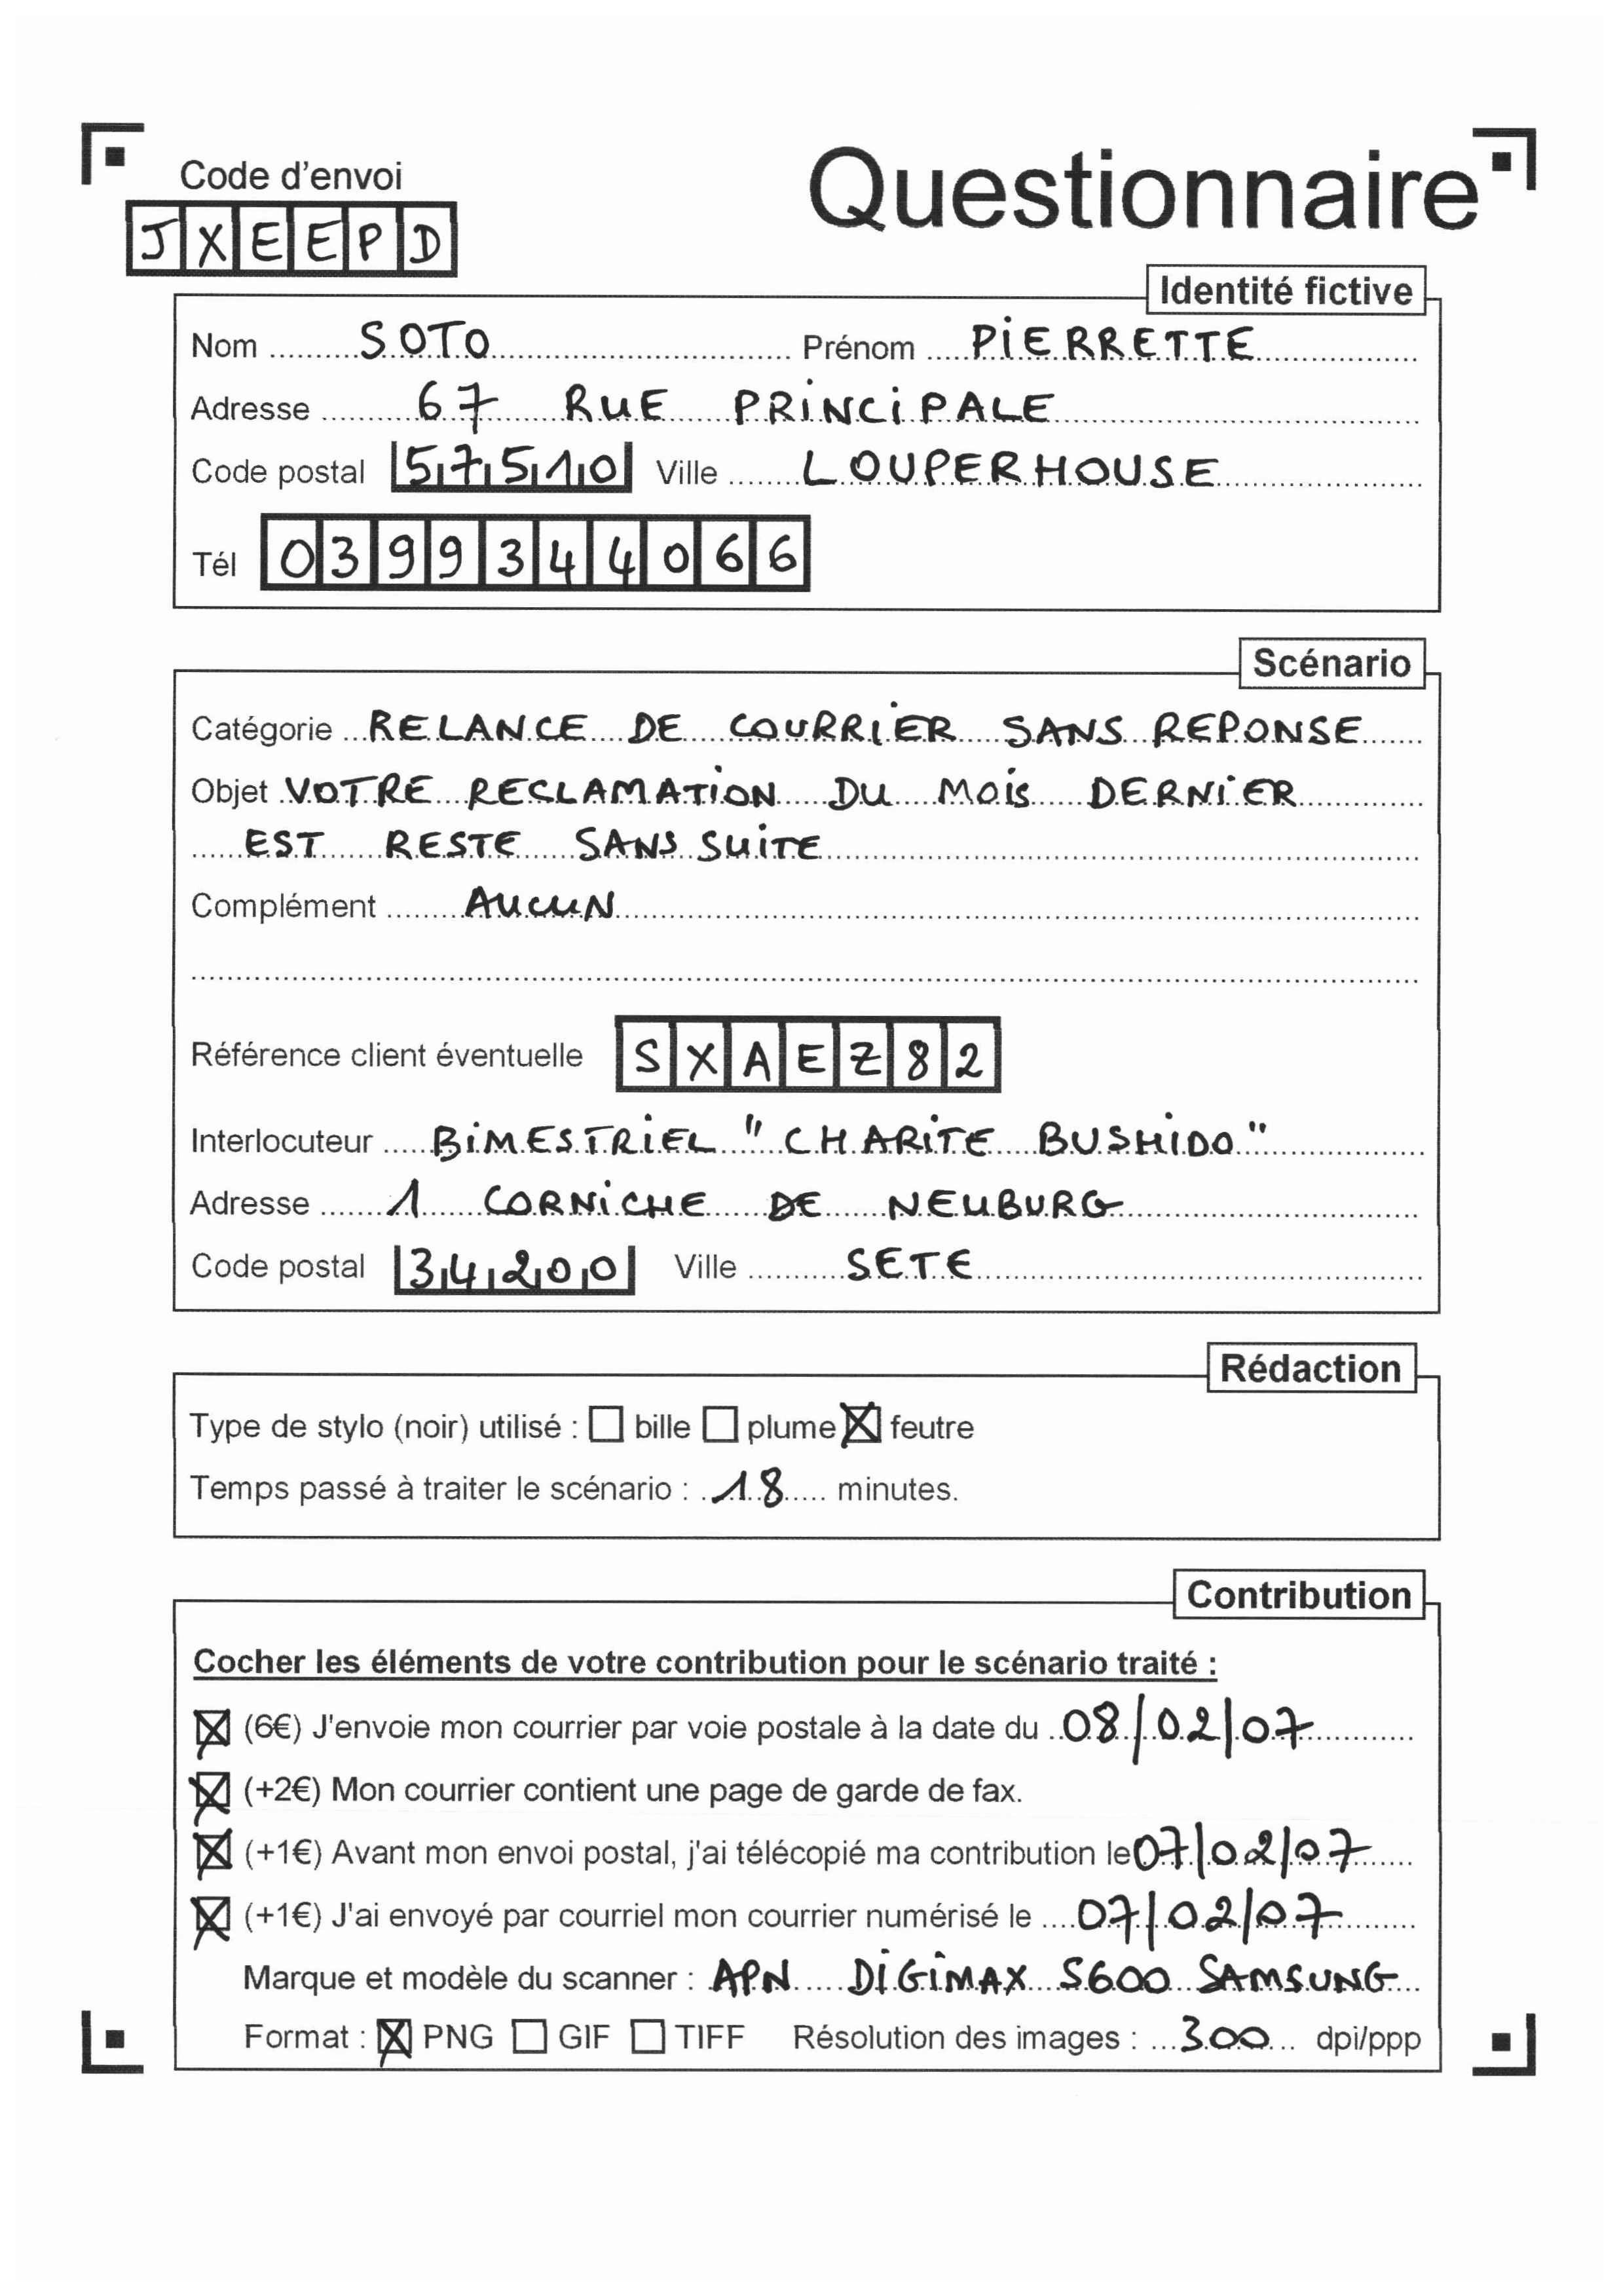 Code d'envoi
Questionnaire
JXEEPD
Identité fictive
Nom SOTO Prénom PIERRETTE
Adresse 67 RUE PRINCIPALE
Code postal 57510 Ville LOUPERHOUSE
Tél 0399344066
Scénario
Catégorie RELANCE DE COURRIER SANS REPONSE
Objet VOTRE RECLAMATION DU MOIS DERNIER
EST RESTE SANS SUITE
Complément AUCUN
Référence client éventuelle SXAEZ82
Interlocuteur BIMESTRIEL "CHARITE BUSHIDO"
Adresse 1 CORNICHE DE NEUBURG
Code postal 34200 Ville SETE
Rédaction
Type de stylo (noir) utilisé : ☐ bille ☐ plume ☒ feutre
Temps passé à traiter le scénario : 18 minutes.
Contribution
Cocher les éléments de votre contribution pour le scénario traité :
☒ (6€) J'envoie mon courrier par voie postale à la date du 08/02/07
☒ (+2€) Mon courrier contient une page de garde de fax.
☒ (+1€) Avant mon envoi postal, j'ai télécopié ma contribution le 07/02/07
☒ (+1€) J'ai envoyé par courriel mon courrier numérisé le 07/02/07
Marque et modèle du scanner : APN DIGIMAX S600 SAMSUNG
Format : ☒ PNG ☐ GIF ☐ TIFF Résolution des images : 300 dpi/ppp